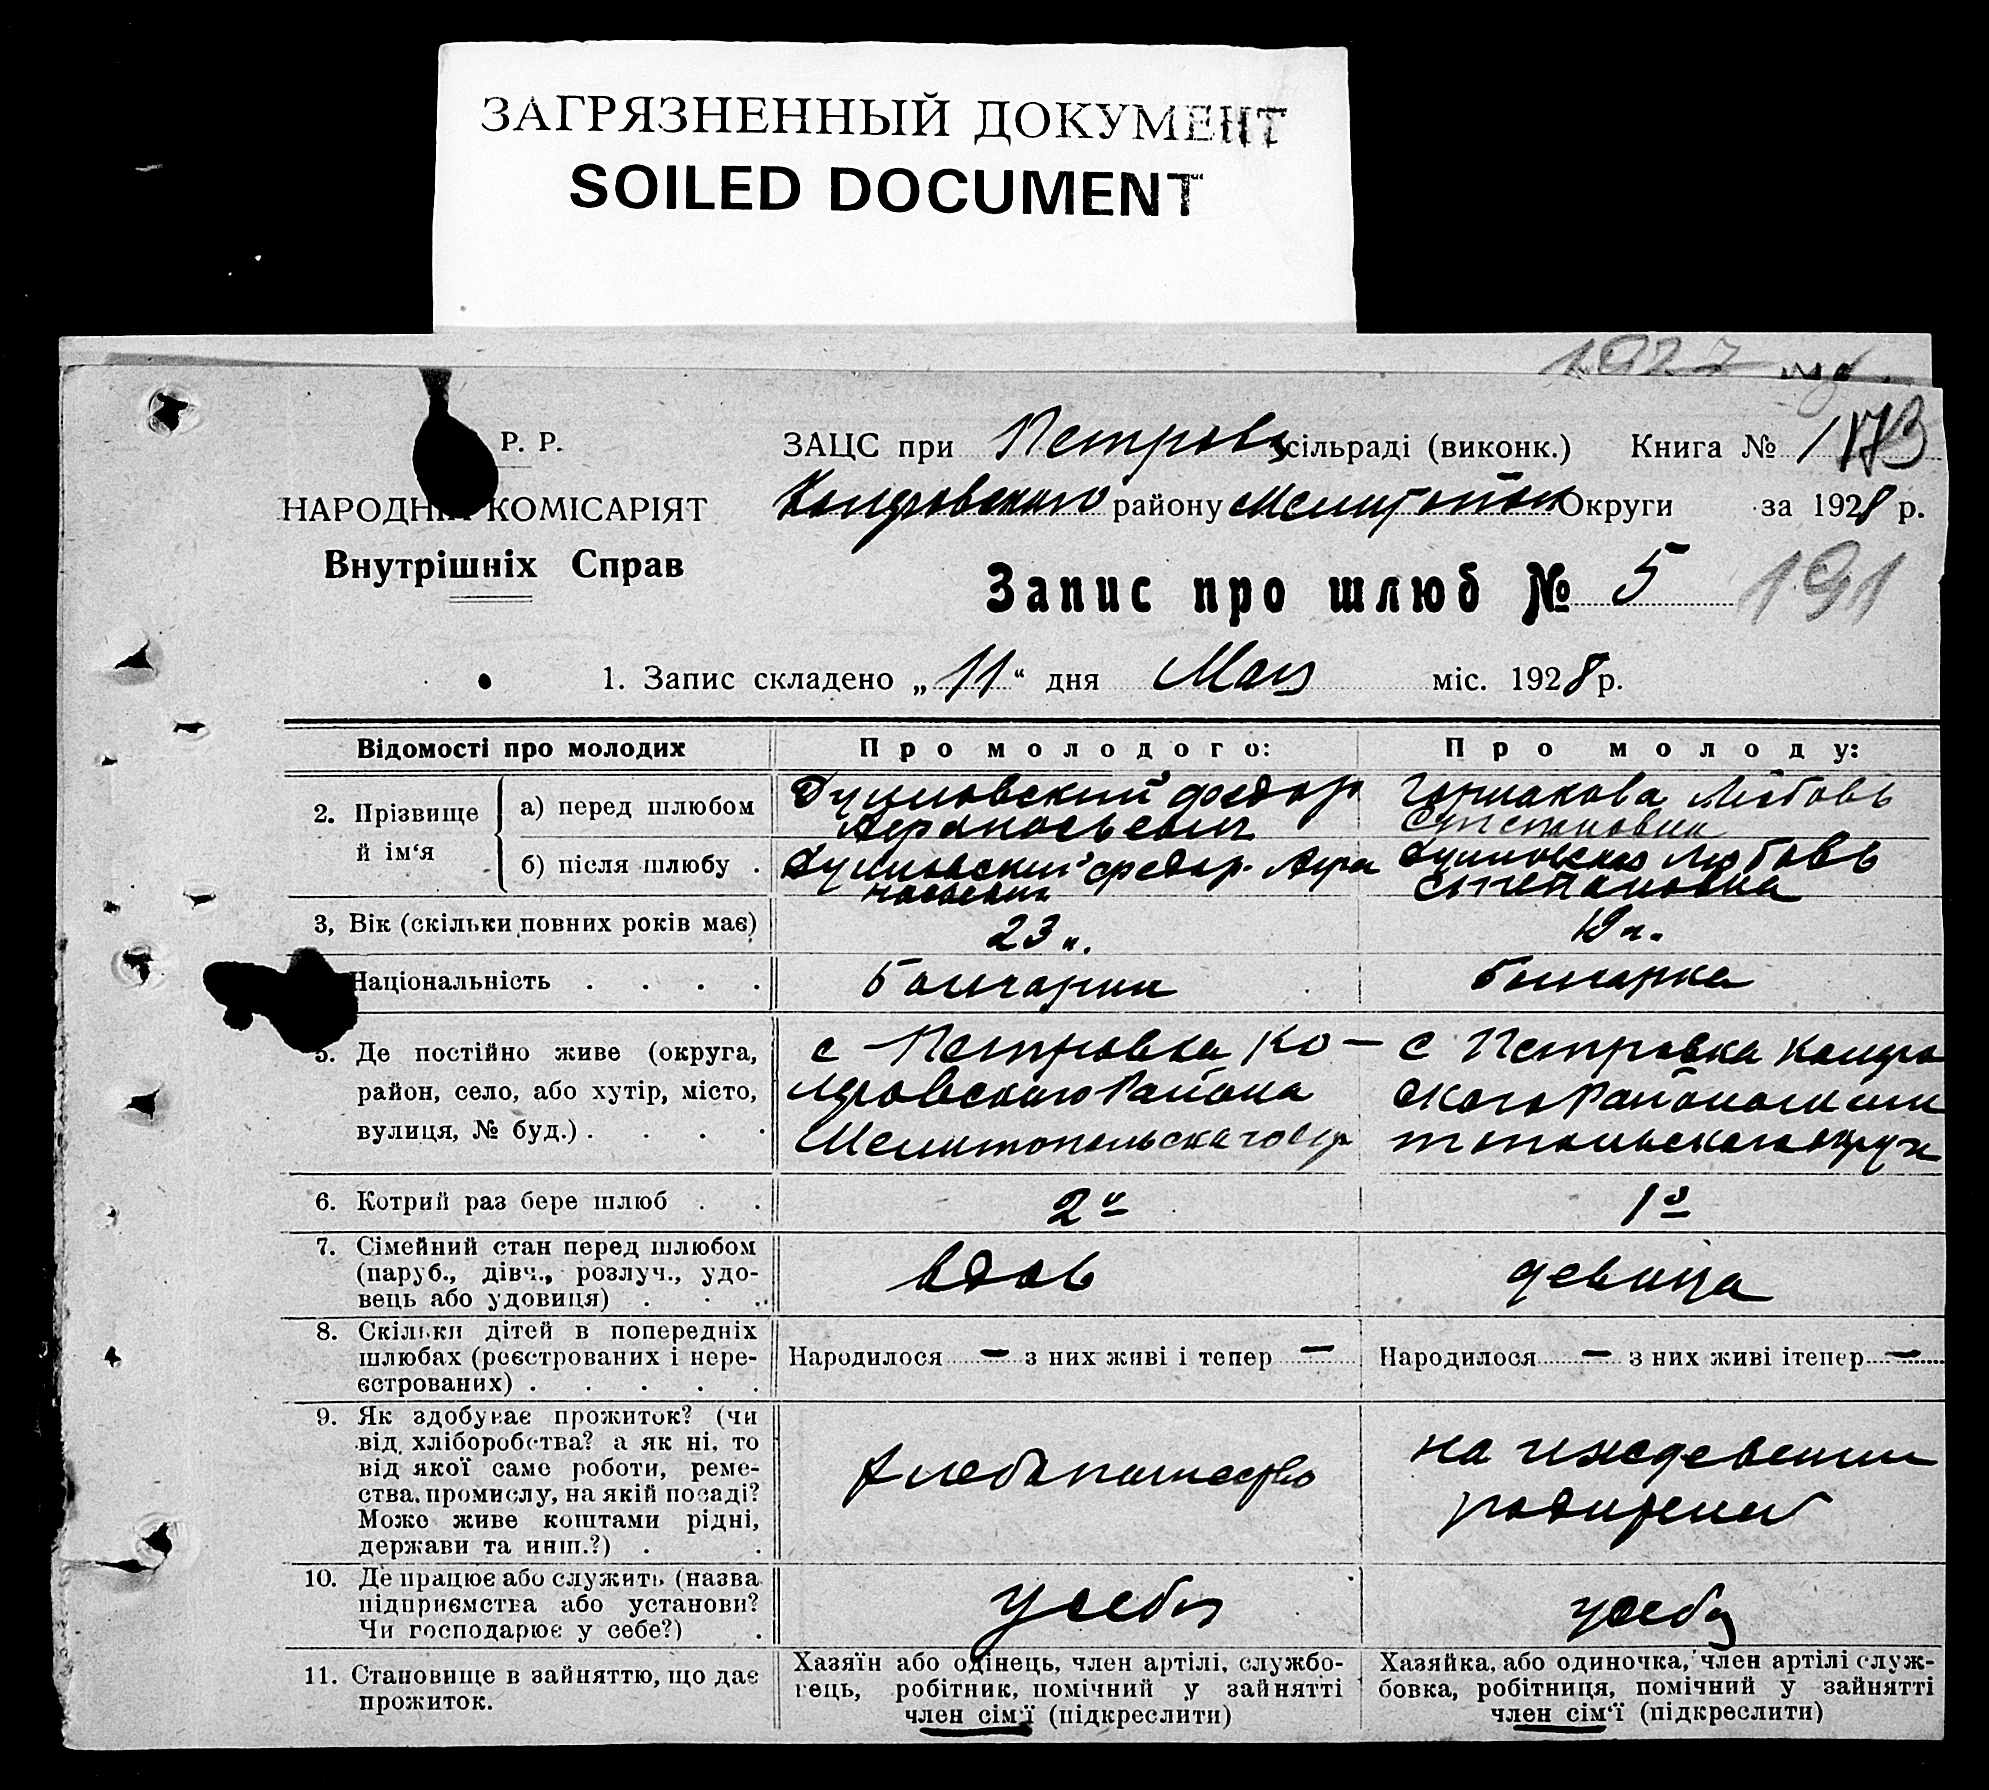 ЗАГРЯЗНЕННЫЙ ДОКУМЕНТ
SOILED DOCUMENT
1927
Р. Р.
ЗАЦС при Петров сільраді (виконк.) Книга № 173
НАРОДНІЙ КОМІСАРІЯТ
району Округи за 1928 р.
Внутрішніх Справ
Запис про шлюб № 5 191
1. Запис складено „11“ дня Мая міс. 1928 р.
Відомості про молодих
Про молодого:
Про молоду:
2. Прізвище й ім‘я
а) перед шлюбом
Федор
Афанасьевич
Любовь
Степановна
б) після шлюбу .
Федор Афа
насьевич
Любовь
Степановна
3, Вік (скільки повних років має)
23 л.
19 л.
Національність . . . .
болгарин
болгарка
5. Де постійно живе (округа,
район, село, або хутір, місто,
вулиця, № буд.) . . . .
с Петровка Ко–
лоровского Района
Мелитопольского окр
с Петровка Колоров
ского Района Мели
топольского округа
6. Котрий раз бере шлюб . .
2й
1й
7. Сімейний стан перед шлюбом
(паруб., дівч., розлуч., удо-
вець або удовиця) . . .
вдов
девица
8. Скільки дітей в попередніх
шлюбах (реєстрованих і нере-
єстрованих) . . . . .
Народилося — з них живі і тепер —
Народилося — з них живі ітепер —
9. Як здобуває прожиток? (чи
від хліборобства? а як ні, то
від якої саме роботи, реме-
ства, промислу, на якій посаді?
Може живе коштами рідні,
держави та инш.?) . .
хлебопашество
на иждевении
родителей
10. Де працює або служить (назва
підприємства або установи?
Чи господарює у себе?) .
у себя
у себя
11. Становище в зайняттю, що дає
прожиток.
Хазяїн або одінець, член артілі, службо-
вець, робітник, помічний у зайнятті
член сім‘ї (підкреслити)
Хазяйка, або одиночка, член артілі служ-
бовка, робітниця, помічний у зайнятті
член сім‘ї (підкреслити)